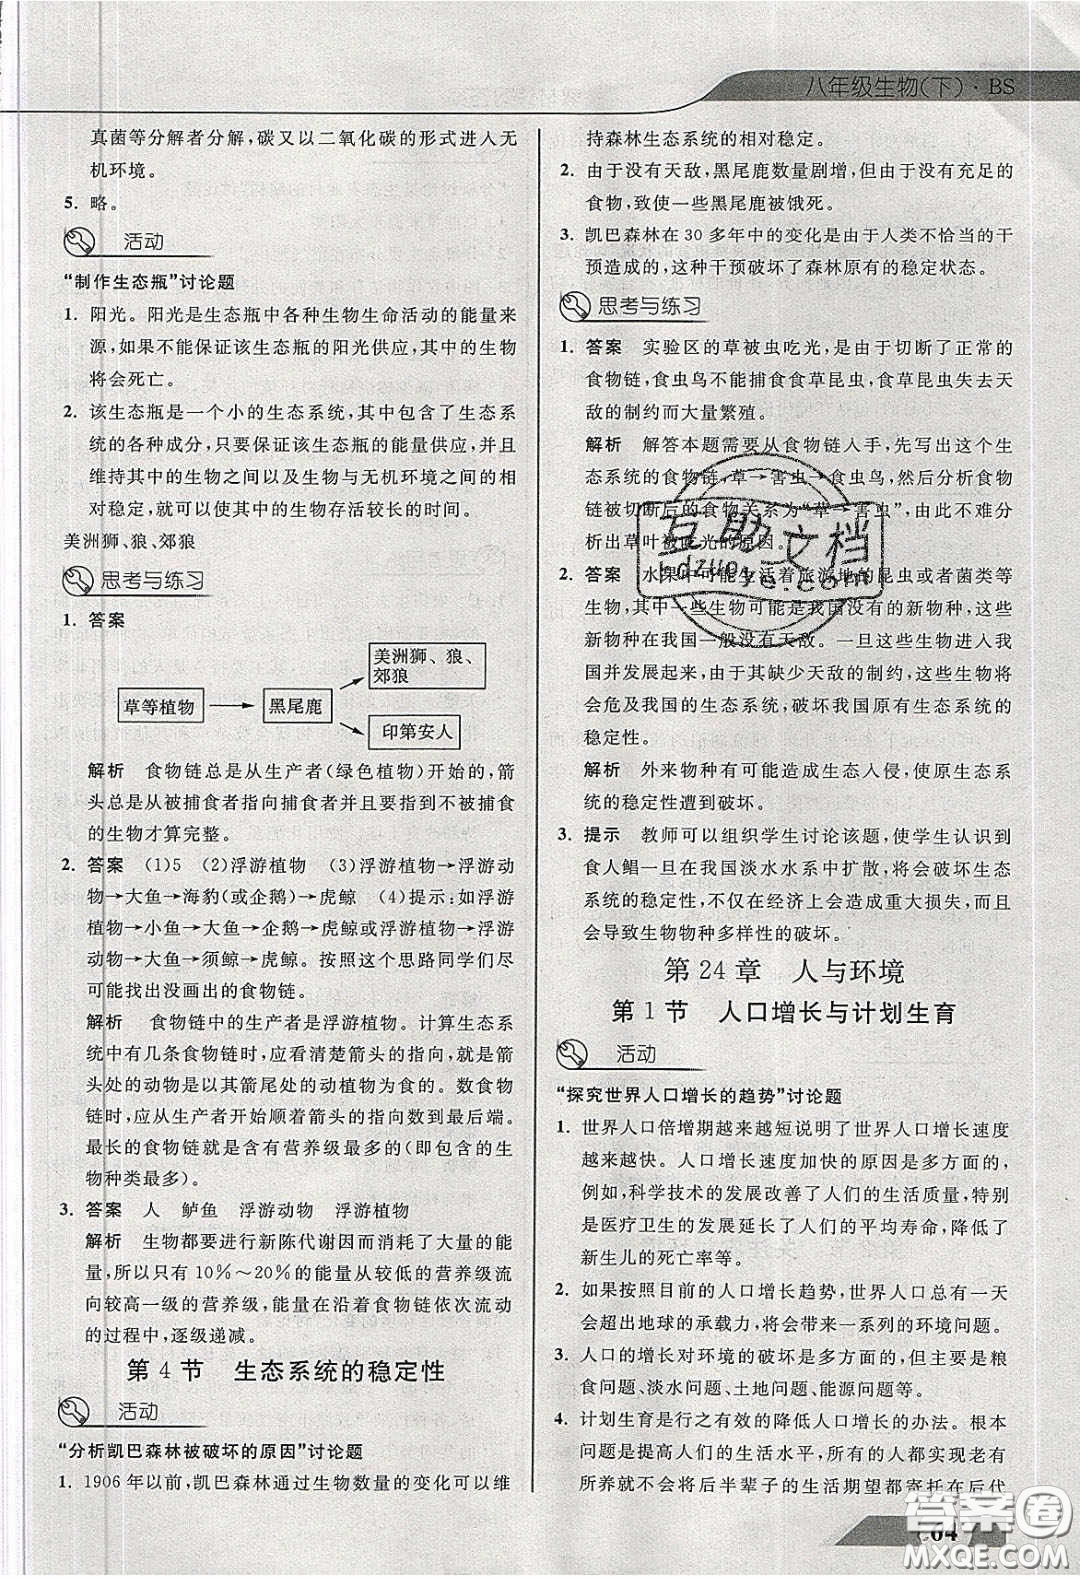 八年级生物(下)·BS
真菌等分解者分解,碳又以二氧化碳的形式进入无
机环境。
5. 略。
活动
“制作生态瓶”讨论题
1. 阳光。阳光是生态瓶中各种生物生命活动的能量来
源,如果不能保证该生态瓶的阳光供应,其中的生物
将会死亡。
2. 该生态瓶是一个小的生态系统,其中包含了生态系
统的各种成分,只要保证该生态瓶的能量供应,并且
维持其中的生物之间以及生物与无机环境之间的相
对稳定,就可以使其中的生物存活较长的时间。
美洲狮、狼、郊狼
思考与练习
1. 答案
草等植物
黑尾鹿
美洲狮、狼、
郊狼
印第安人
解析 食物链总是从生产者(绿色植物)开始的,箭
头总是从被捕食者指向捕食者并且要把所有被捕食
的生物才算完整。
2. 答案 (1)5 (2)浮游植物 (3)浮游植物→浮游动
物→大鱼→海豹(或企鹅)→虎鲸 (4)提示:如浮游
植物→小鱼→大鱼→企鹅→虎鲸或浮游植物→浮游
动物→大鱼→须鲸→虎鲸。按照这个思路同学们可
能找出没画出的食物链。
解析 食物链中的生产者是浮游植物。计算生态系
统中有几条食物链时,应看清楚箭头的指向,箭头指
处的动物是以其箭尾处的动植物为食的。数食物
链时,应从生产者开始顺着箭头的指向数到最后端。
最长的食物链就是含有营养级最多的(即包含的生
物种类最多)。
3. 答案 人 鲈鱼 浮游动物 浮游植物
解析 生物都要进行新陈代谢因而消耗了大量的能
量,所以只有10%~20%的能量从较低的营养级流
向较高一级的营养级,能量在沿着食物链依次流动
的过程中,逐级递减。
第 4 节 生态系统的稳定性
活动
“分析凯巴森林被破坏的原因”讨论题
1. 1906年以前,凯巴森林通过生物数量的变化可以维
持森林生态系统的相对稳定。
2. 由于没有天敌,黑尾鹿数量剧增,但由于没有充足的
食物,致使一些黑尾鹿被饿死。
3. 凯巴森林在30多年中的变化是由于人类不恰当的干
预造成的,这种干预破坏了森林原有的稳定状态。
思考与练习
1. 答案 实验区的草被虫吃光,是由于切断了正常的
食物链,食虫鸟不能捕食食草昆虫,食草昆虫失去天
敌的制约而大量繁殖。
解析 解答本题需要从食物链入手,先写出这个生
态系统的食物链,草→害虫→食虫鸟,然后分析食物
链被切断后的食物关系为“草→害虫”,由此不难分
析出草叶被吃光的原因。
2. 答案 水果中可能生活着旅游地的昆虫或者菌类等
生物,其中一些生物可能是我国没有的新物种,这些
新物种在我国一般没有天敌。一旦这些生物进入我
国并发展起来,由于其缺少天敌的制约,这些新物种
将会危及我国的生态系统,破坏我国原有生态系统的
稳定性。
解析 外来物种有可能造成生态入侵,使原生态系
统的稳定性遭到破坏。
3. 提示 教师可以组织学生讨论该题,使学生认识到
食人鲳一旦在我国淡水水系中扩散,将会破坏生态
系统的稳定性,不仅在经济上会造成重大损失,而且
会导致生物物种多样性的破坏。
第 24 章 人与环境
第 1 节 人口增长与计划生育
活动
“探究世界人口增长的趋势”讨论题
1. 世界人口倍增期越来越短说明了世界人口增长速度
越来越快。人口增长速度加快的原因是多方面的,
例如,科学技术的发展改善了人们的生活质量,特别
是医疗卫生的发展延长了人们的平均寿命,降低了
新生儿的死亡率等。
2. 如果按照预测的人口增长趋势,世界人口总有一天
会超出地球的承载力,将会带来一系列的环境问题。
3. 人口的增长对环境的破坏是多方面的,主要是粮
食问题、淡水问题、土地问题、能源问题等。
4. 计划生育是行之有效的降低人口增长的办法。根本
问题是提高人们的生活水平,所有的人都实现老有
所养就不会将后半辈子的生活期望都寄托在后代
互助文档
hdzuoye.com
答案圈
MXQE.COM